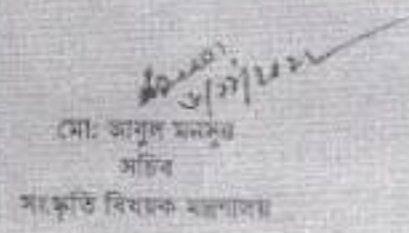 মো: আবুল মনসুর
সচিব
সংস্কৃতি বিষয়ক মন্ত্রণালয়